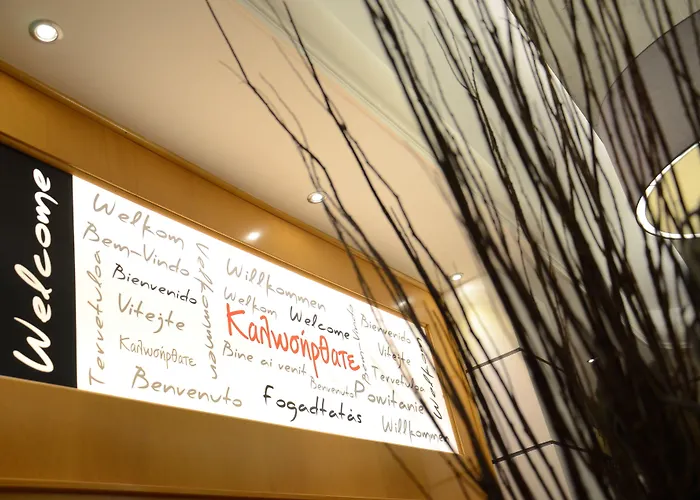 Welcome
Welkom
Bem-Vindo
Bienvenido
Tervetuloa
Vitejte
Καλωσήρθατε
Benvenuto
Willkommen
Welkom
Welcome
Καλωσήρθατε
Bine ai venit
Benvenuto
Fogadtatás
Bienvenido
Vitejte
Tervetuloa
Powitanie
Willkommen